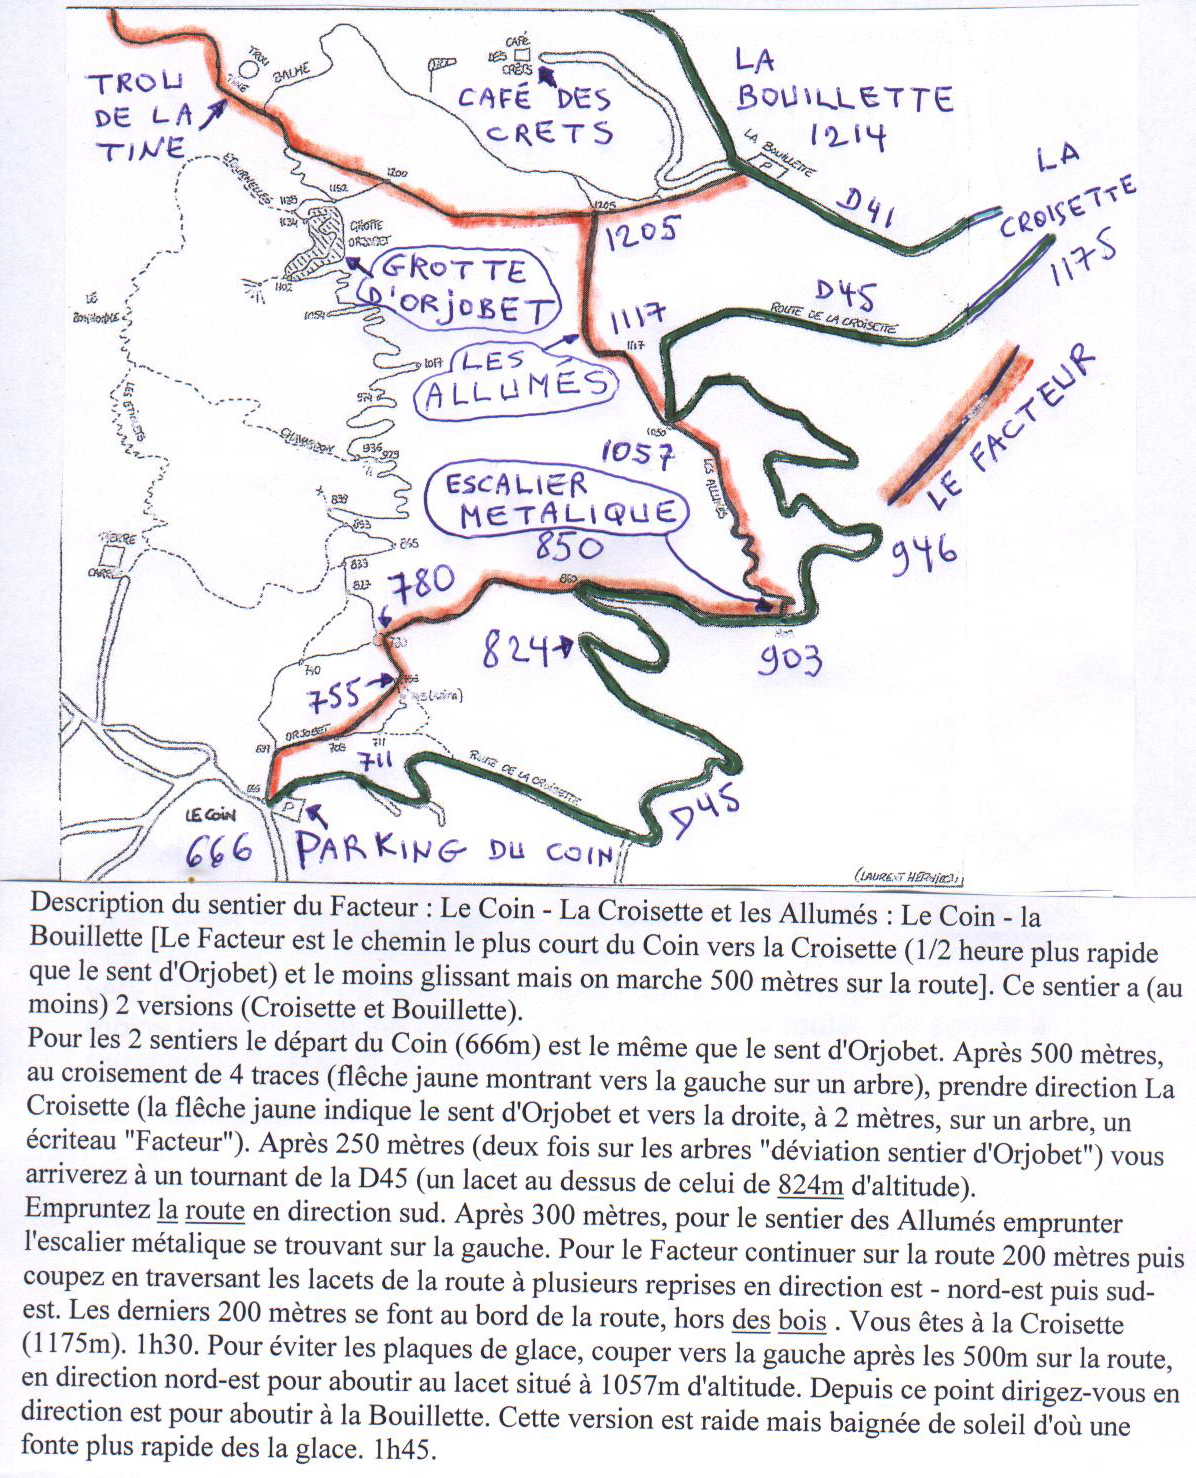 TROU
TINE
BALME
CAFÉ
DES
CRÊTS
TROU
DE LA
TINE
CAFÉ DES
CRETS
LA
BOUILLETTE
1214
LA BOUILLETTE
P
LA
CROISETTE
1175
D41
ETOURNELLES
1200
1152
1135
1134
GROTTE
ORJOBET
1205
1205
GROTTE
D'ORJOBET
1102
1054
D45
ROUTE DE LA CROISETTE
1117
1117
LES
ALLUMÉS
1017
974
LE FACTEUR
1057
LES ALLUMÉS
936
929
ESCALIER
METALIQUE
850
898
893
855
833
827
946
PIERRE
780
824
903
740
755
ORJOBET
691
708
711
711
ROUTE DE LA CROISETTE
D45
LE COIN
666
P
PARKING DU COIN
Description du sentier du Facteur : Le Coin - La Croisette et les Allumés : Le Coin - la
Bouillette [Le Facteur est le chemin le plus court du Coin vers la Croisette (1/2 heure plus rapide
que le sent d'Orjobet) et le moins glissant mais on marche 500 mètres sur la route]. Ce sentier a (au
moins) 2 versions (Croisette et Bouillette).
Pour les 2 sentiers le départ du Coin (666m) est le même que le sent d'Orjobet. Après 500 mètres,
au croisement de 4 traces (flêche jaune montrant vers la gauche sur un arbre), prendre direction La
Croisette (la flêche jaune indique le sent d'Orjobet et vers la droite, à 2 mètres, sur un arbre, un
écriteau "Facteur"). Après 250 mètres (deux fois sur les arbres "déviation sentier d'Orjobet") vous
arriverez à un tournant de la D45 (un lacet au dessus de celui de 824m d'altitude).
Empruntez la route en direction sud. Après 300 mètres, pour le sentier des Allumés emprunter
l'escalier métalique se trouvant sur la gauche. Pour le Facteur continuer sur la route 200 mètres puis
coupez en traversant les lacets de la route à plusieurs reprises en direction est - nord-est puis sud-
est. Les derniers 200 mètres se font au bord de la route, hors des bois . Vous êtes à la Croisette
(1175m). 1h30. Pour éviter les plaques de glace, couper vers la gauche après les 500m sur la route,
en direction nord-est pour aboutir au lacet situé à 1057m d'altitude. Depuis ce point dirigez-vous en
direction est pour aboutir à la Bouillette. Cette version est raide mais baignée de soleil d'où une
fonte plus rapide des la glace. 1h45.